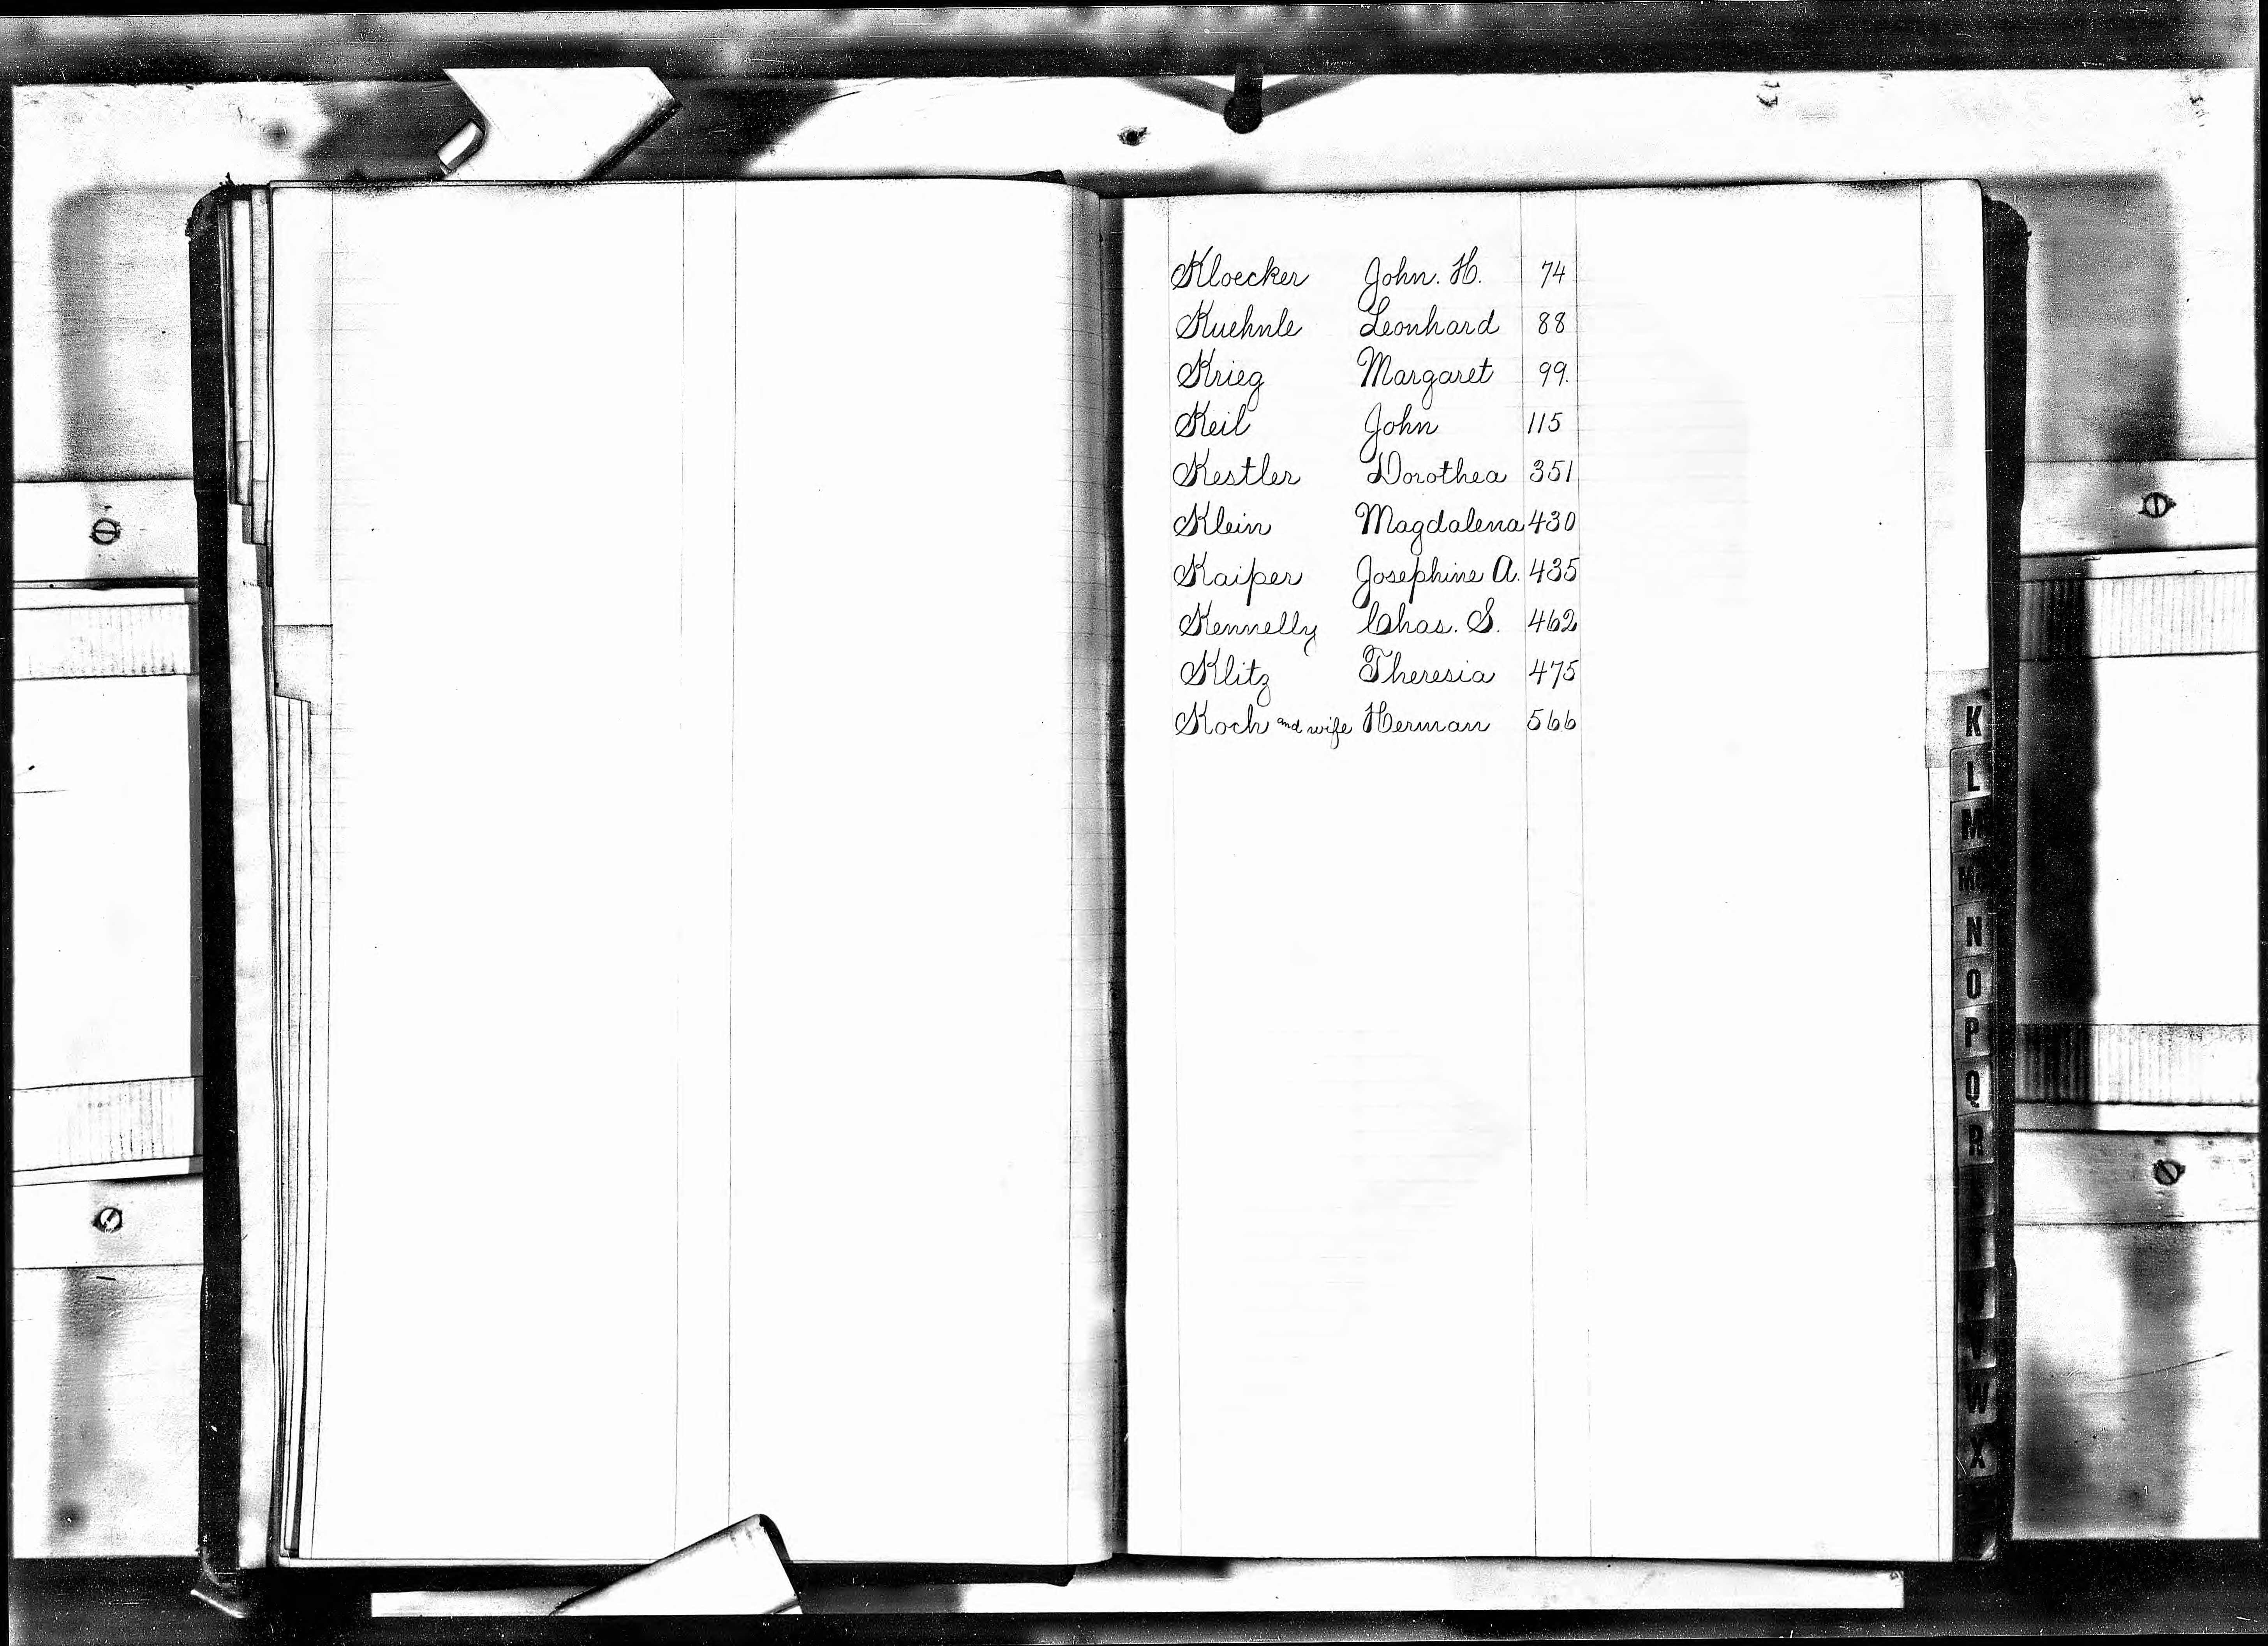 Kloecker John. H. 74
Kuehnle Leonhard 88
Krieg Margaret 99.
Keil John 115
Kestler Dorothea 351
Klein Magdalena 430
Kaiper Josephine A. 435
Kennelly Chas. S. 462
Klitz Theresia 475
Koch and wife Herman 566
K
L
M
Mc
N
O
P
Q
R
V
W
X